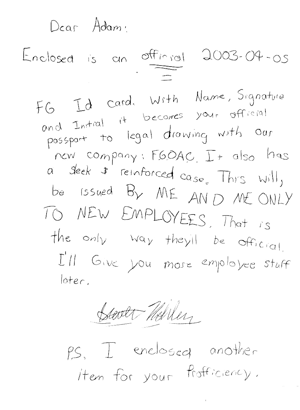 Dear Adam:
Enclosed is an official 2003-04-05
FG Id card. With Name, Signature
and Initial it becomes your official
passport to legal drawing with our
new company: FGOAC. It also has
a sleek & reinforced case. This will
be issued By ME AND ME ONLY
TO NEW EMPLOYEES. That is
the only way they'll be official.
I'll Give you more employee stuff
later.
PS. I enclosed another
item for your Proficiency.